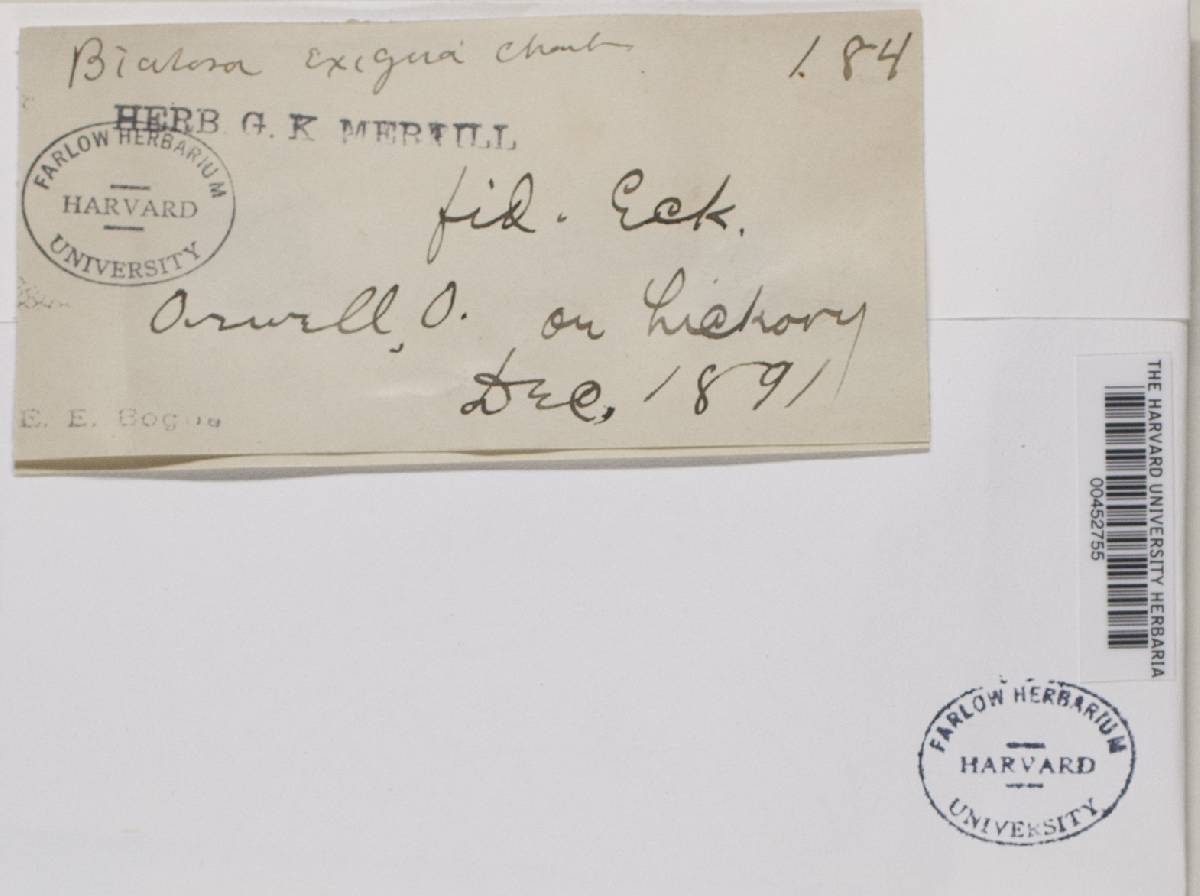 Biatora exigua Chaub 1.84
HERB. G. K MERRILL
FARLOW HERBARIUM
HARVARD
UNIVERSITY
fid. Eck.
Orwell, O. on hickory
Dec, 1891
E. E. Bogue
THE HARVARD UNIVERSITY HERBARIA
00452755
FARLOW HERBARIUM
HARVARD
UNIVERSITY